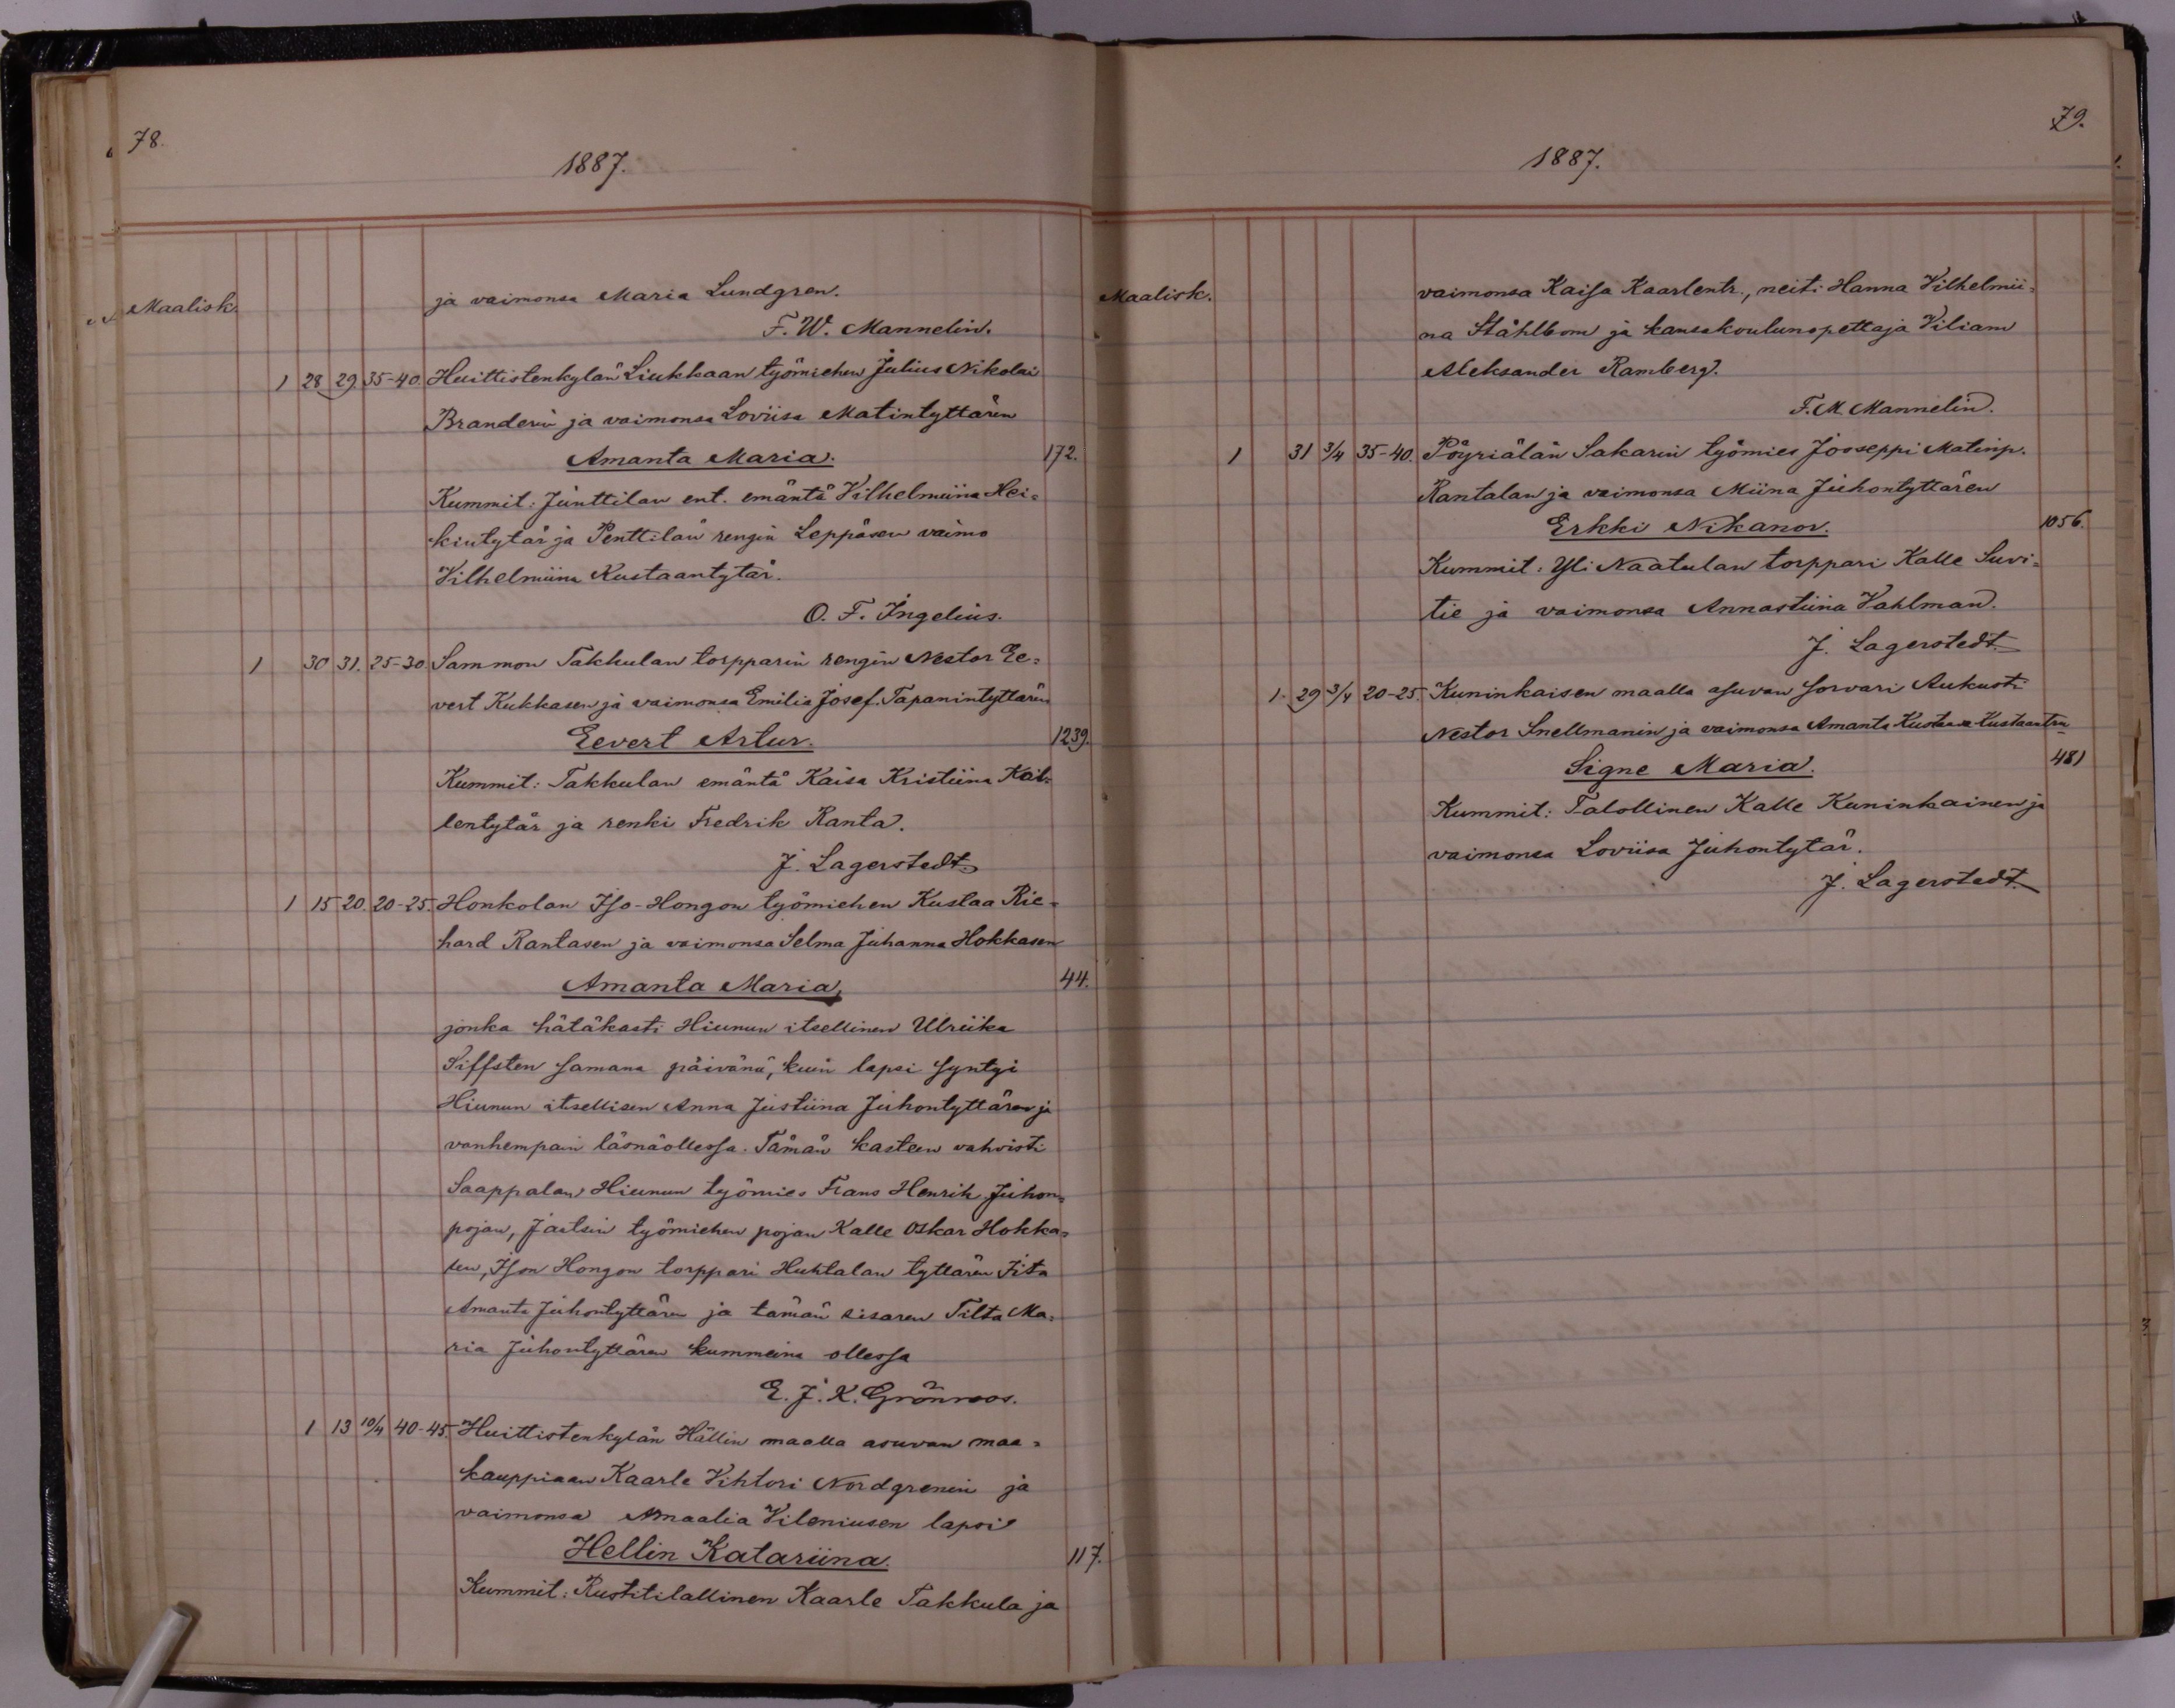 78.
1887.
Maalisk. ja vaimonsa Maria Lundgren.
F. W. Mannelin.
1 28 29 35-40. Huittistenkylän Liukkaan työmiehen Julius Nikolai
Branderin ja vaimonsa Loviisa Matintyttären
Amanta Maria. 172.
Kummit: Junttilan ent. emäntä Vilhelmiina Hei=
kintytär ja Penttilän rengin Leppäsen vaimo
Vilhelmiina Kustaantytär.
O. F. Ingelius.
1 30 31. 25-30 Sammon Takkulan torpparin rengin Nestor Ee=
vert Kukkasen ja vaimonsa Emilia Josef. Tapanintyttären
Eevert Artur. 1239.
Kummit: Takkulan emäntä Kaisa Kristiina Kal=
lentytär ja renki Fredrik Ranta.
J. Lagerstedt
1 15 20. 20-25. Honkolan Iso-Hongon työmiehen Kustaa Ric=
hard Rantasen ja vaimonsa Selma Juhanna Hokkasen
Amanta Maria, 44.
jonka hätäkasti Hiunun itsellinen Ulriika
Siffsten samana päivänä, kuin lapsi syntyi
Hiunun itsellisen Anna Justiina Juhontyttären ja
vanhempain läsnäollessa. Tämän kasteen vahvisti
Saappalan Hiunun työmies Frans Henrik Juhon=
pojan, työmiehen pojan Kalle Oskar Hokka=
sen, Ison Hongon torppari Huhtalan tyttären Iita
Amanta Juhontyttären ja tämän sisaren Tilta Ma=
ria Juhontyttären kummeina ollessa
E. J. K. Grönroos.
1 13 10/4 40-45. Huittistenkylän Hällin maalla asuvan maa=
kauppiaan Kaarle Vihtori Nordgrenin ja
vaimonsa Amaalia Vileniusen lapsi
Hellin Katariina. 117.
Kummit: Rustitilallinen Kaarle Takkula ja
79.
1887.
Maalisk. vaimonsa Kaisa Kaarlentr., neiti Hanna Vilhelmii=
na Ståhlbom ja kansakoulunopettaja Viliam
Aleksander Ramberg.
F. M. Mannelin.
1 31 3/4 35-40. Pöyriälän Sakarin työmies Jooseppi Matinp.
Rantalan ja vaimonsa Miina Juhontyttären
Erkki Nikanor. 1056.
Kummit: Yli Naatulan torppari Kalle Suvi=
tie ja vaimonsa Annastiina Vahlman.
J. Lagerstedt.
1 29 3/4 20-25. Kuninkaisen maalla asuvan sorvari Aukusti
Nestor Snellmanin ja vaimonsa Amanta Kustaava Kustaantrn
Signe Maria. 481
Kummit: Talollinen Kalle Kuninkainen ja
vaimonsa Loviisa Juhontytär.
J. Lagerstedt.